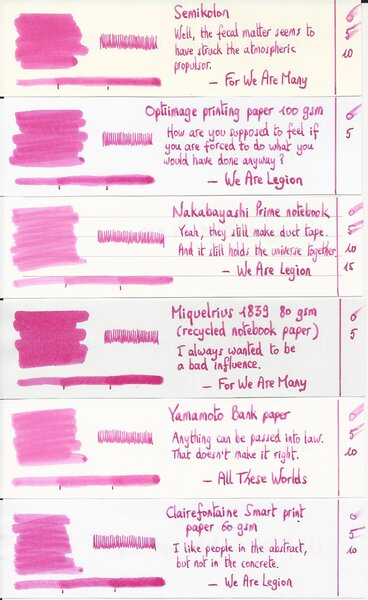 Semikolon
Well, the fecal matter seems to
have struck the atmospheric
propulsor.
— For We Are Many
0
5
10
Optiimage printing paper 100 gsm
How are you supposed to feel if
you are forced to do what you
would have done anyway?
— We Are Legion
0
5
Nakabayashi Prime notebook
Yeah, they still make duct tape.
And it still holds the universe together.
— We Are Legion
0
5
10
15
Miquelrius 1839 80 gsm
(recycled notebook paper)
I always wanted to be
a bad influence.
— For We Are Many
0
5
Yamamoto Bank paper
Anything can be passed into law.
That doesn't make it right.
— All These Worlds
0
5
10
Clairefontaine Smart print
paper 60 gsm
I like people in the abstract,
but not in the concrete.
— We Are Legion
0
5
10